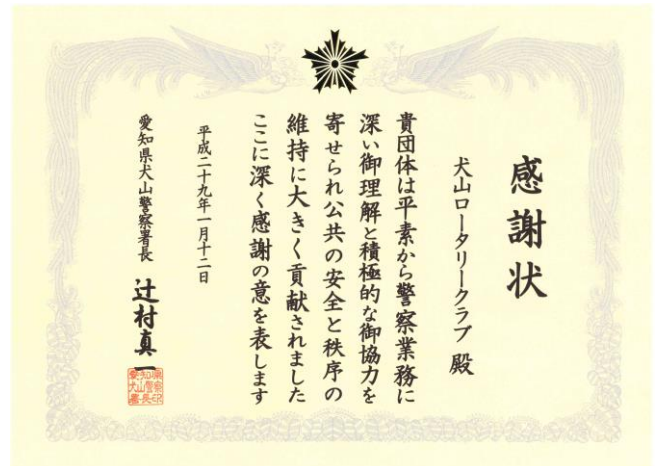 感謝状
犬山ロータリークラブ 殿
貴団体は平素から警察業務に
深い御理解と積極的な御協力を
寄せられ公共の安全と秩序の
維持に大きく貢献されました
ここに深く感謝の意を表します
平成二十九年一月十二日
愛知県犬山警察署長 辻村真一